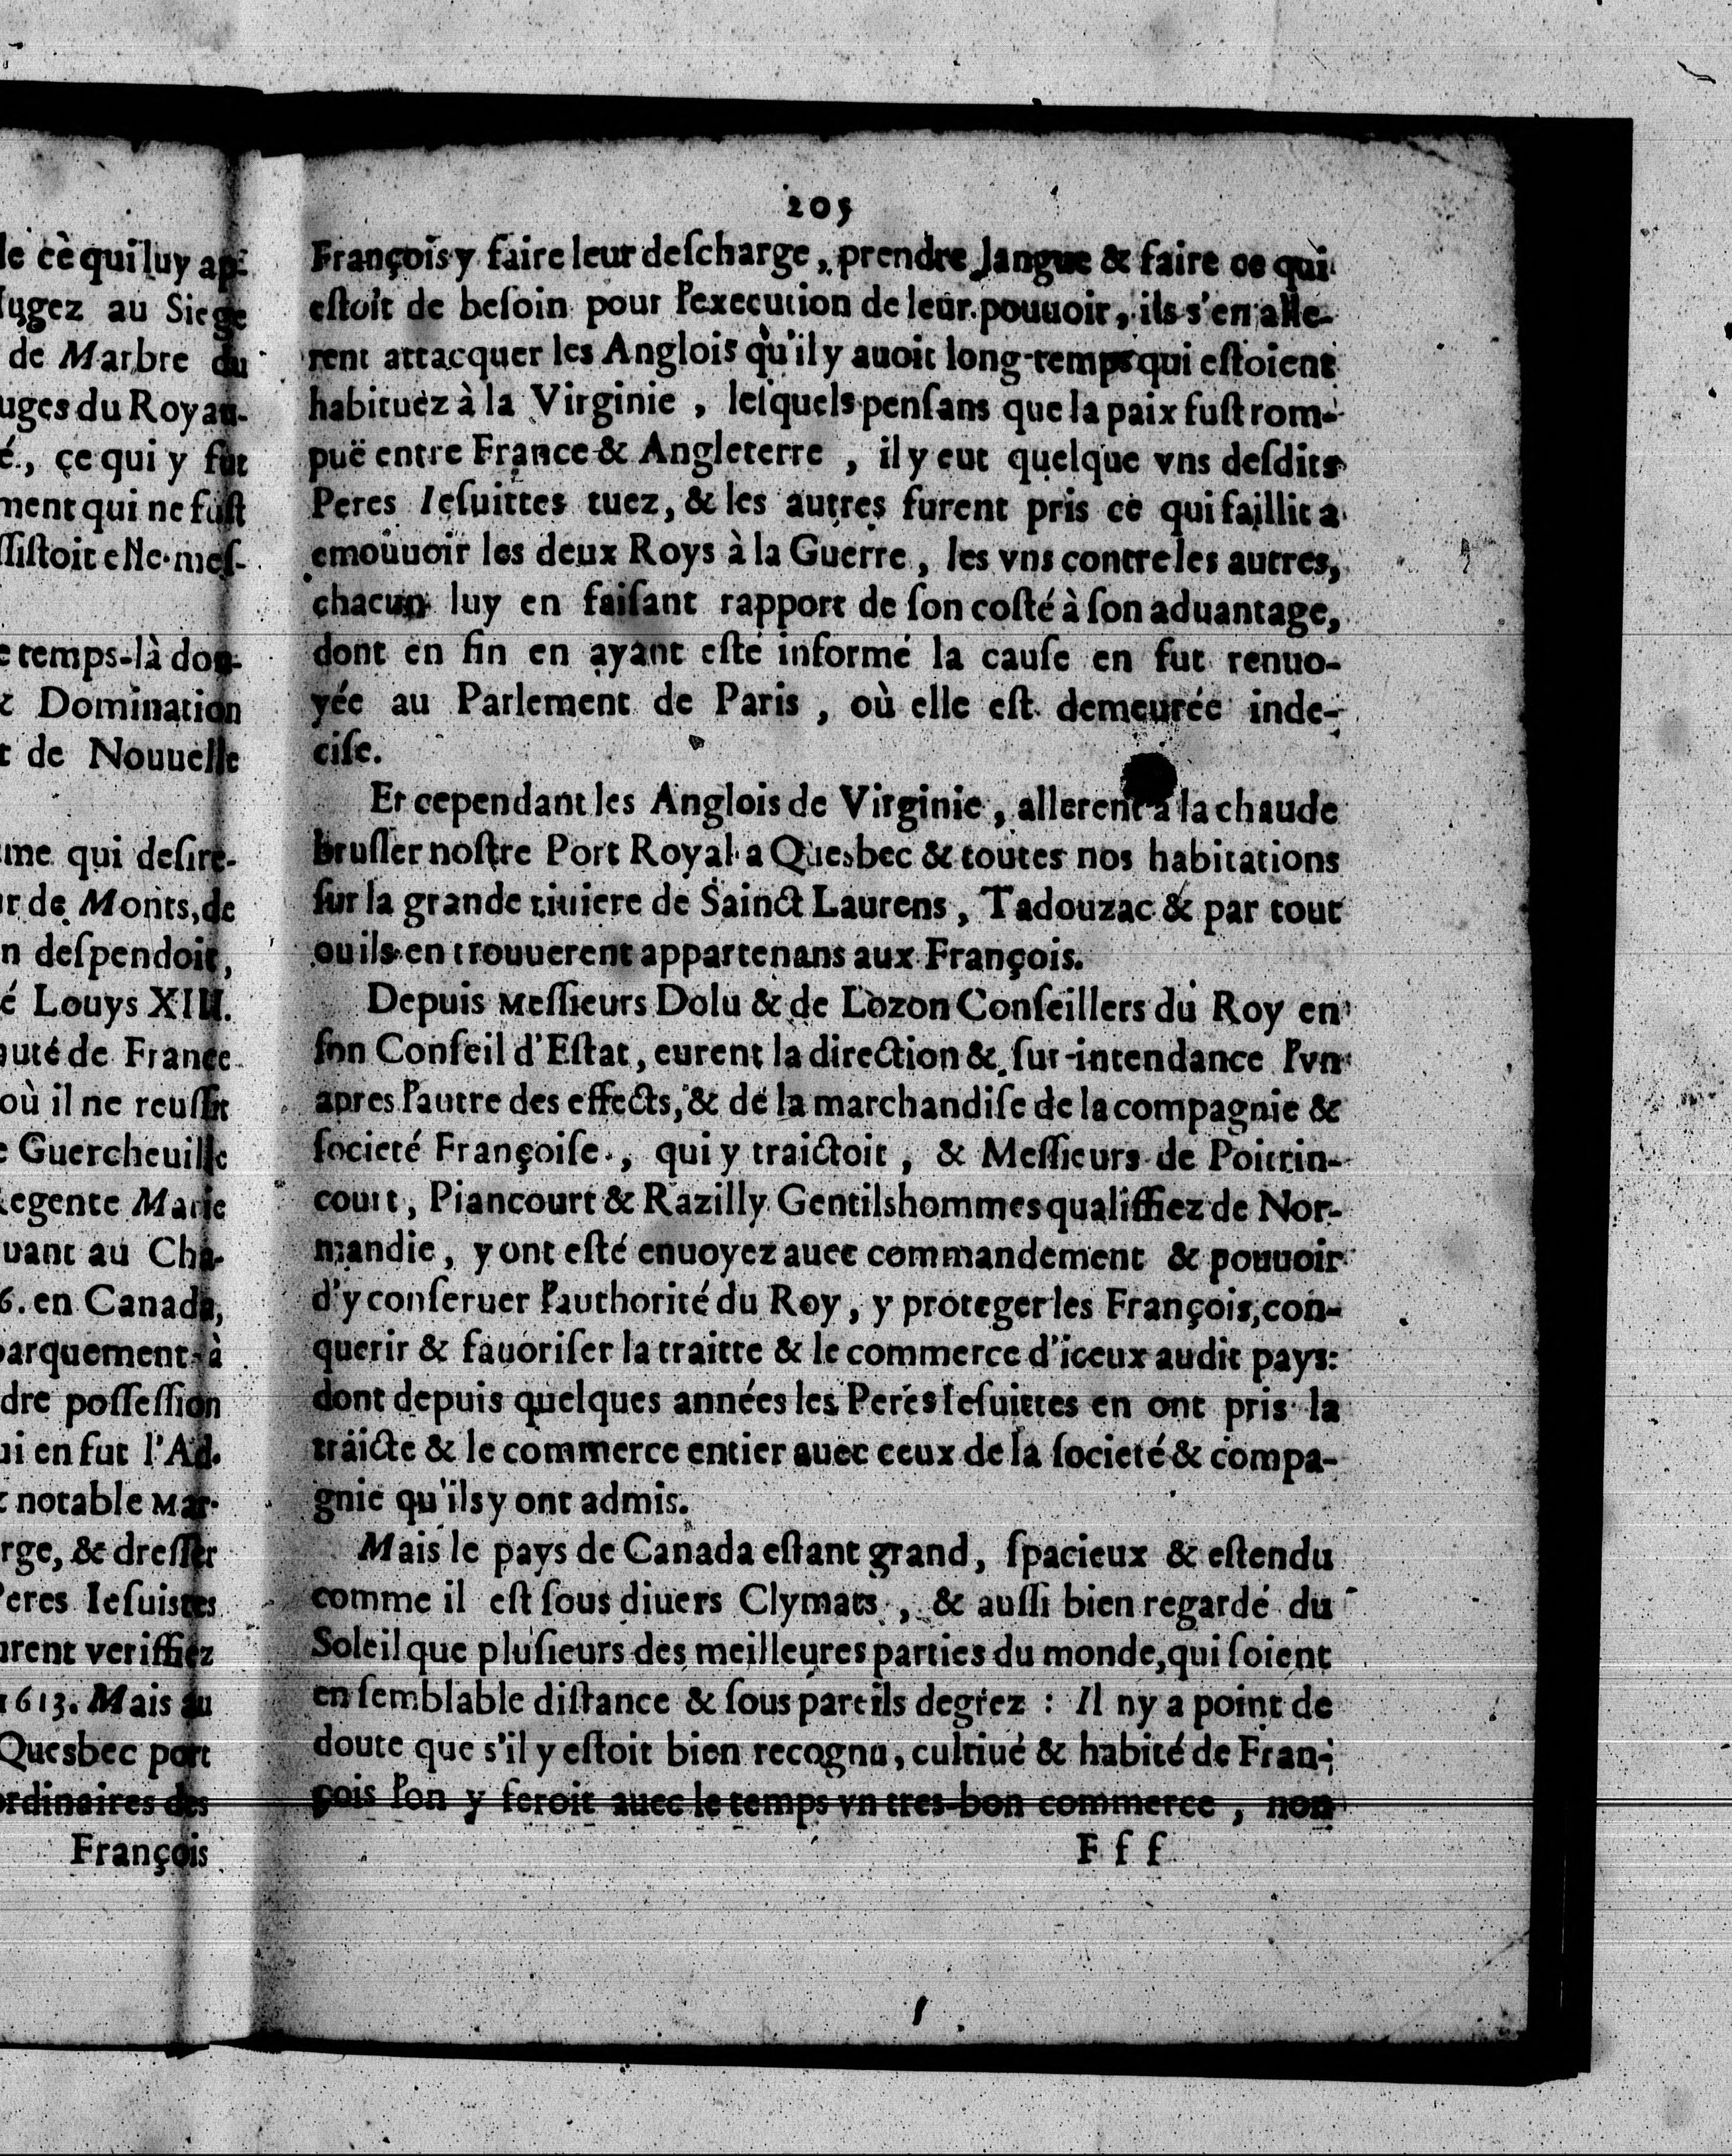 le cè qui luy ap-
Iugez au Siege
de Marbre du
uges du Royau-
é, ce qui y fut
ment qui ne fust
ſſiſtoit elle-meſ-
e temps-là don-
& Domination
t de Nouuelle
me qui deſire-
ur de Monts, de
n deſpendoit,
é Louys XIII.
auté de France
où il ne reuſſit
e Guercheuille
Regente Marie
uant au Cha-
6. en Canada,
barquement à
dre poſſeſſion
ui en fut l'Ad-
& notable Mar-
rge, & dreſſer
Peres Ieſuistes
urent veriffiez
1613. Mais au
Quesbec port
ordinaires des
François
205
François y faire leur deſcharge, prendre langue & faire ce qui
eſtoit de beſoin pour l'execution de leur pouuoir, ils s'en alle-
rent attacquer les Anglois qu'il y auoit long-temps qui eſtoient
habituez à la Virginie, leſquels penſans que la paix fuſt rom-
puë entre France & Angleterre, il y eut quelque vns deſdits
Peres Ieſuittes tuez, & les autres furent pris ce qui faillit a
emouuoir les deux Roys à la Guerre, les vns contre les autres,
chacun luy en faiſant rapport de ſon coſté à ſon aduantage,
dont en fin en ayant eſté informé la cauſe en fut renuo-
yée au Parlement de Paris, où elle eſt demeurée inde-
ciſe.
Et cependant les Anglois de Virginie, allerent à la chaude
bruſler noſtre Port Royal a Quesbec & toutes nos habitations
ſur la grande riuiere de Sainct Laurens, Tadouzac & par tout
ou ils en trouuerent appartenans aux François.
Depuis Meſſieurs Dolu & de Lozon Conſeillers du Roy en
ſon Conſeil d'Eſtat, eurent la direction & ſur-intendance l'vn
apres l'autre des effects, & de la marchandiſe de la compagnie &
ſocieté Françoiſe, qui y traictoit, & Meſſieurs de Poittrin-
court, Piancourt & Razilly Gentilshommes qualiffiez de Nor-
mandie, y ont eſté enuoyez auec commandement & pouuoir
d'y conſeruer l'authorité du Roy, y proteger les François, con-
querir & fauoriſer la traitte & le commerce d'iceux audit pays:
dont depuis quelques années les Peres Ieſuittes en ont pris la
traicte & le commerce entier auec ceux de la ſocieté & compa-
gnie qu'ils y ont admis.
Mais le pays de Canada eſtant grand, ſpacieux & eſtendu
comme il eſt ſous diuers Clymats, & auſſi bien regardé du
Soleil que pluſieurs des meilleures parties du monde, qui ſoient
en ſemblable diſtance & ſous pareils degrez : Il ny a point de
doute que s'il y eſtoit bien recognu, cultiué & habité de Fran-
çois l'on y feroit auec le temps vn tres-bon commerce, non
F f f